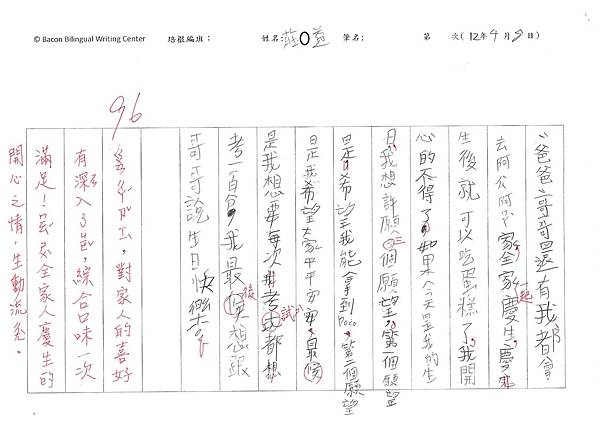 © Bacon Bilingual Writing Center 培根編班： 姓名：莊○萱 筆名： 第 次( 112年 4月 9日)
、爸爸、哥哥還有我都會
去阿公阿ㄇㄚˋ家全家一起慶生，慶
生後就可以吃蛋糕了，我開
心的不得了，如果今天是我的生
日，我想許願三個願望，第一個願望
是，希望我能拿到Poco，第二個願望
是我希望大家平平安安，最後
是我想要每次考試都想
考一百分，我最後想跟
哥哥說生日快樂。
96
對家人的喜好
有深入了解，綜合口味一次
滿足！全家人慶生的
開心之情，生動流露。